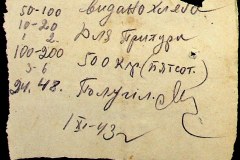 50-100 Выдано хлеба
10-20
1 2. Для Припура
100-200
3-6 500 кгр (пятсот.
24.48. Получил.
1/XI-43г